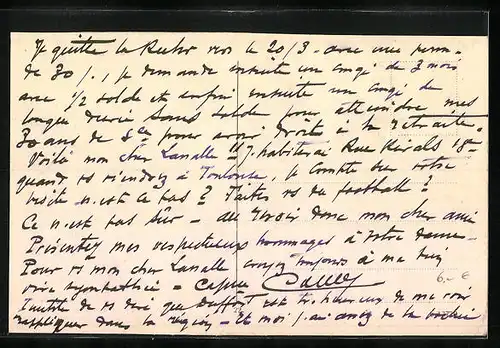 Je quitte la Ruhr vers le 20/3 - avec une perm.
de 30 j., je demande ensuite un congé de 3 mois
avec 1/2 solde et enfin ensuite un congé de
longue durée sans solde pour atteindre mes
30 ans de Sce pour avoir droit à la retraite.
Voilà mon cher Lasalle - J'habiterai Rue Rivals 18
quand vs viendrez à Toulouse, je compte sur votre
visite n'est ce pas? Faites vs du football?
Ce n'est pas sûr - au revoir donc mon cher ami
Présentez mes respectueux hommages à votre dame -
Pour vs mon cher Lasalle croyez toujours à ma bien
vive sympathie =
6.- €
Inutile de vs dire que est très heureux de me voir
rappliquer dans la région - 26 mois j'ai assez de la